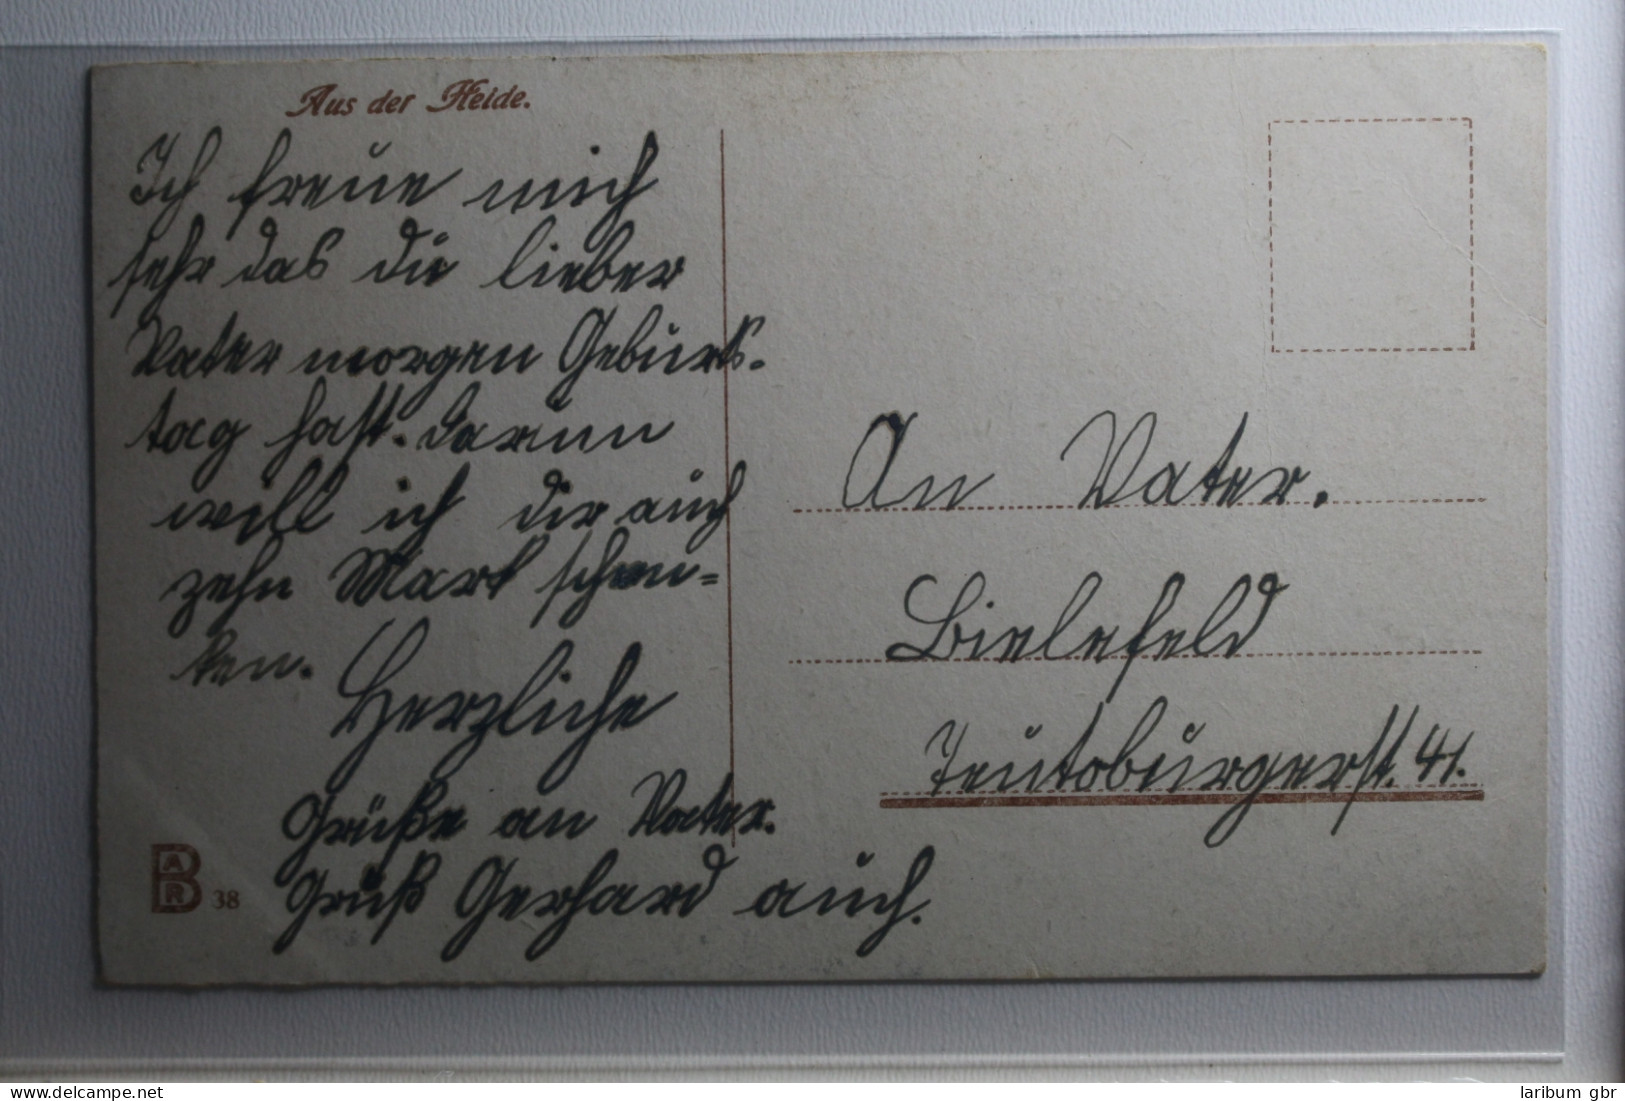 Aus der Heide.
Ich freue mich
sehr das du lieber
Vater morgen Geburts-
tag hast. Darum
will ich dir auch
zehn Mark schen=
ken.
Herzliche
Grüße an Vater.
Gruß Gerhard auch.
An Vater.
Bielefeld
Teutoburgerst. 41.
BAR 38
www.delcampe.net
laribum gbr